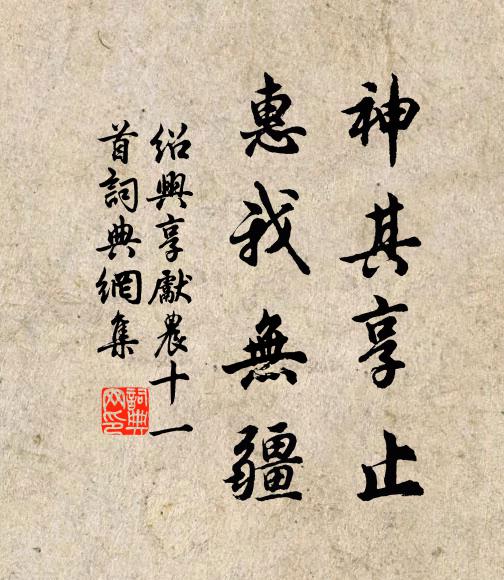 神其享止
惠我無疆
紹興享獻農十一
首詞典網集
詞典網印